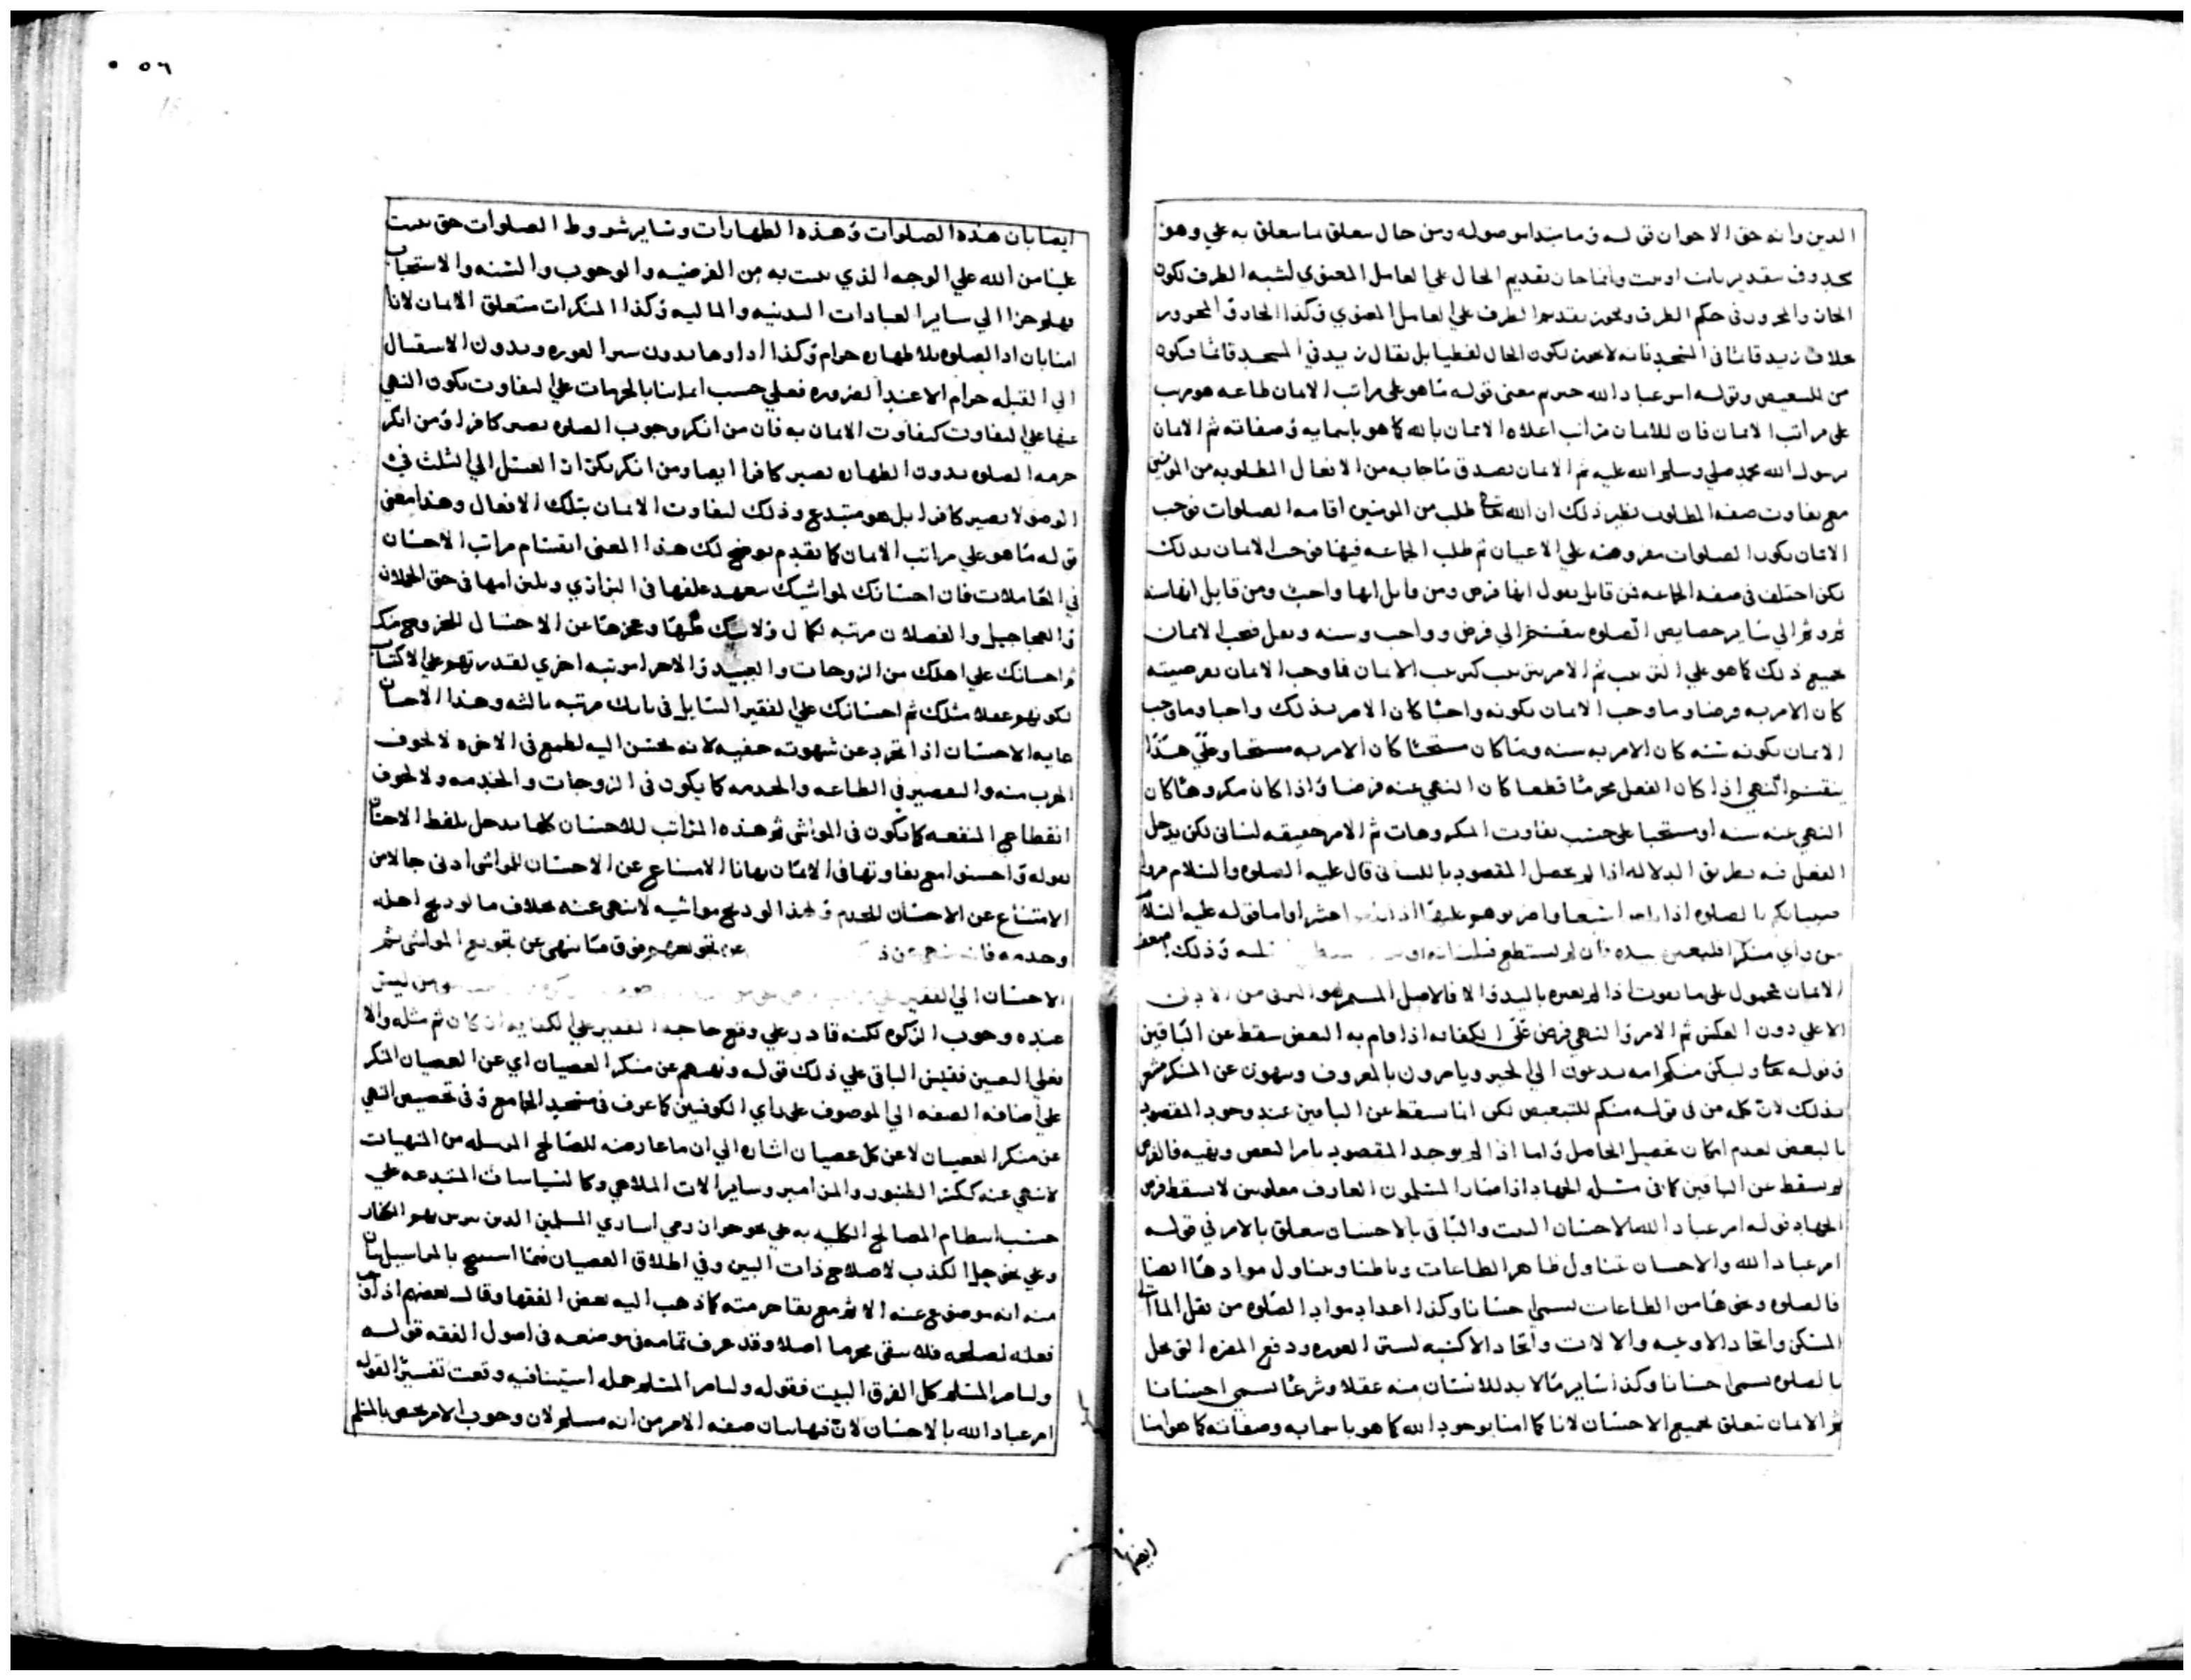 الدين وانه حق الاخوان قوله وما مبتدا موصوله ومن حال متعلق بما يتعلق به علي وهو
محذوف بتقدير ثابت او ثبت وانما جاز تقديم الحال علي العامل المعنوي لشبه الظرف لكون
الجار والمجرور في حكم الظرف ويجوز تقديم الظرف علي العامل المعنوي فكذا الجار والمجرور
بخلاف زيد قائما في المسجد فانه لا يجوز لكون الحال لفظيا بل يقال زيد في المسجد قائما فيكون
من للتبعيض وقوله امر عباد الله خبره معنى قوله ما هو على مراتب الايمان طاعه هو مرتب
على مراتب الايمان فان للايمان مراتب اعلاه الايمان بالله كما هو باسمايه وصفاته ثم الايمان
برسول الله محمد صلي الله عليه وسلم ثم الايمان بصدق ما جا به من الافعال المطلوبه من المومنين
مع تفاوت صفه المطلوب نظير ذلك ان الله تعالى طلب من المومنين اقامه الصلوات فوجب
الايمان بكون الصلوات مفروضه علي الاعيان ثم طلب الجماعه فيها فوجب الايمان بذلك
لكن اختلف في صفه الجماعه فمن قايل يقول انها فرض ومن قايل انها واجب ومن قايل انها سنه
ثم وثم الي ساير خصايص الصلوه ينقسم الي فرض وواجب وسنه ونفل فيجب الايمان
بجميع ذلك كما هو علي الترتيب ثم الامر يترتب كترتب الايمان فما وجب الايمان بفرضيته
كان الامر به فرضا وما وجب الايمان بكونه واجبا كان الامر بذلك واجبا وما وجب
الايمان بكونه سنه كان الامر به سنه وما كان مستحبا كان الامر به مستحبا وعلي هذا
ينقسم النهي اذا كان الفعل محرما قطعا كان النهي عنه فرضا واذا كان مكروها كان
النهي عنه سنه او مستحبا على حسب تفاوت المكروهات ثم الامر حقيقه لساني لكن يدخل
الفعل فيه بطريق الدلاله اذا لم يحصل المقصود باللساني قال عليه الصلوه والسلام مروا
صبيانكم بالصلوه اذا بلغوا سبعا واضربوهم عليها اذا بلغوا عشرا واما قوله عليه السلام
من راي منكرا فليغيره بيده فان لم يستطع فبلسانه وذلك اضعف
الايمان محمول على ما يفوت اذا لم يغيره باليد والا فالاصل المستمر هو الترقي من الادنى
الاعلي دون العكس ثم الامر والنهي فرض علي الكفايه اذا قام به البعض سقط عن الباقين
قوله تعالى ولتكن منكم امه يدعون الي الخير ويامرون بالمعروف وينهون عن المنكر مشعر
بذلك لان كلمه من في قوله منكم للتبعيض لكن انما يسقط عن الباقين عند وجود المقصود
بالبعض لعدم امكان تحصيل الحاصل واما اذا لم يوجد المقصود بامر البعض ونهيه فالفرض
لم يسقط عن الباقين كما في مسله الجهاد اذا صار المسلمون العارف مغلوبين لا يسقط فرض
الجهاد قوله امر عباد الله بالاحسان البيت والباقي بالاحسان متعلق بالامر في قوله
امر عباد الله والاحسان يتناول ظاهر الطاعات وباطنها ويتناول موادها ايضا
فالصلوه ونحوها من الطاعات يسمي احسانا وكذا اعداد مواد الصلوه من نقل الما الي
المسكن واتخاذ الاوعيه والالات واتخاذ الاكسيه لستر العوره ودفع المضره التي تخل
بالصلوه يسمي احسانا وكذا ساير ما لا بد للانسان منه عقلا وشرعا يسمي احسانا
ثم الايمان يتعلق بجميع الاحسان لانا كما امنا بوجود الله كما هو باسمايه وصفاته كما هو امنا
ايضا
٥٦
ايضا بان هذه الصلوات وهذه الطهارات وساير شروط الصلوات حق ثبت
علينا من الله علي الوجه الذي ثبت به من الفرضيه والوجوب والسنه والاستحباب
وهلم جرا الي ساير العبادات البدنيه والماليه وكذا المنكرات متعلق الايمان لانا
امنا بان ادا الصلوه بلا طهاره حرام وكذا اداوها بدون ستر العوره وبدون الاستقبال
الي القبله حرام الا عند الضروره فعلي حسب ايماننا بالحرمات علي التفاوت يكون النهي
عنها علي التفاوت كتفاوت الايمان به فان من انكر وجوب الصلوه يصير كافرا ومن انكر
حرمه الصلوه بدون الطهاره يصير كافرا ايضا ومن انكر تكرار الغسل الي الثلث في
الوضو لا يصير كافرا بل هو مبتدع وذلك لتفاوت الايمان بتلك الافعال وهذا معنى
قوله ما هو علي مراتب الايمان كما تقدم يوضح لك هذا المعنى انقسام مراتب الاحسان
في المعاملات فان احسانك لمواشيك بتعهد علفها في البراري وبلبن امها في حق الحملان
والعجاجيل والفصلان مرتبه لكمال ولايتك عليها وعجزها عن الاحتيال للخروج منك
واحسانك علي اهلك من الزوجات والعبيد والاحرار مرتبه اخري لقدرتهم علي الاكتساب
لكونهم عقلا مثلك ثم احسانك علي الفقير السايل في بابك مرتبه ثالثه وهذا الاحسان
غايه الاحسان اذا تجرد عن شهوته خفيه لانه يحسن اليه لطمع في الاخره لا لخوف
الهرب منه والتقصير في الطاعه والخدمه كما يكون في الزوجات والخدمه ولا لخوف
انقطاع المنفعه كما يكون في المواشي ثم هذه المراتب للاحسان كلها يدخل بلفظ الاحسان
بقوله واحسنوا مع تفاوتها في الايمان بها فان الامتناع عن الاحسان للمواشي ادنى حالا من
الامتناع عن الاحسان للخدم ولهذا لو ذبح مواشيه لا ينهى عنه بخلاف ما لو ذبح اهله
وخدمه فانه ينهي عن ذ عن تجويعهم فوق ما ينهى عن تجويع المواشي ثم
الاحسان الي الفقير ومن ليس
عنده وجوب الزكوه لكنه قادر علي دفع حاجه الفقير علي الكفايه ان كان ثم مثله والا
فعلي العين فقس الباقي علي ذلك قوله ونهيهم عن منكر العصيان اي عن العصيان المنكر
علي اضافه الصفه الي الموصوف على راي الكوفيين كما عرف في مسجد الجامع وفي تخصيص النهي
عن منكر العصيان لا عن كل عصيان اشاره الي ان ما عارضه للصالح المرسله من المنهيات
لا ينهي عنه ككسر الطنبور والمزامير وساير الات الملاهي وكالسياسات المبتدعه علي
حسب انتظام المصالح الكليه به علي نحو جواز رمي اساري المسلمين الذين تترس بهم الكفار
وعلي نحو حل الكذب لاصلاح ذات البين وفي اطلاق العصيان فيما استبيح بالمراسيل بيان
منه انه موضوع عنه الاثم مع بقا حرمته كما ذهب اليه بعض الفقها وقال بعضهم اذا وجب
فعله لمصلحه فلا يبقى محرما اصلا وقد عرف تمامه في موضعه في اصول الفقه قوله
وليامر المسلم كل الفرق البيت فقوله وليامر المسلم جمله استينافيه وقعت تفسيرا لقوله
امر عباد الله بالاحسان لان فيها بيان صفه الامر من انه مسلم لان وجوب الامر يختص بالمسلم